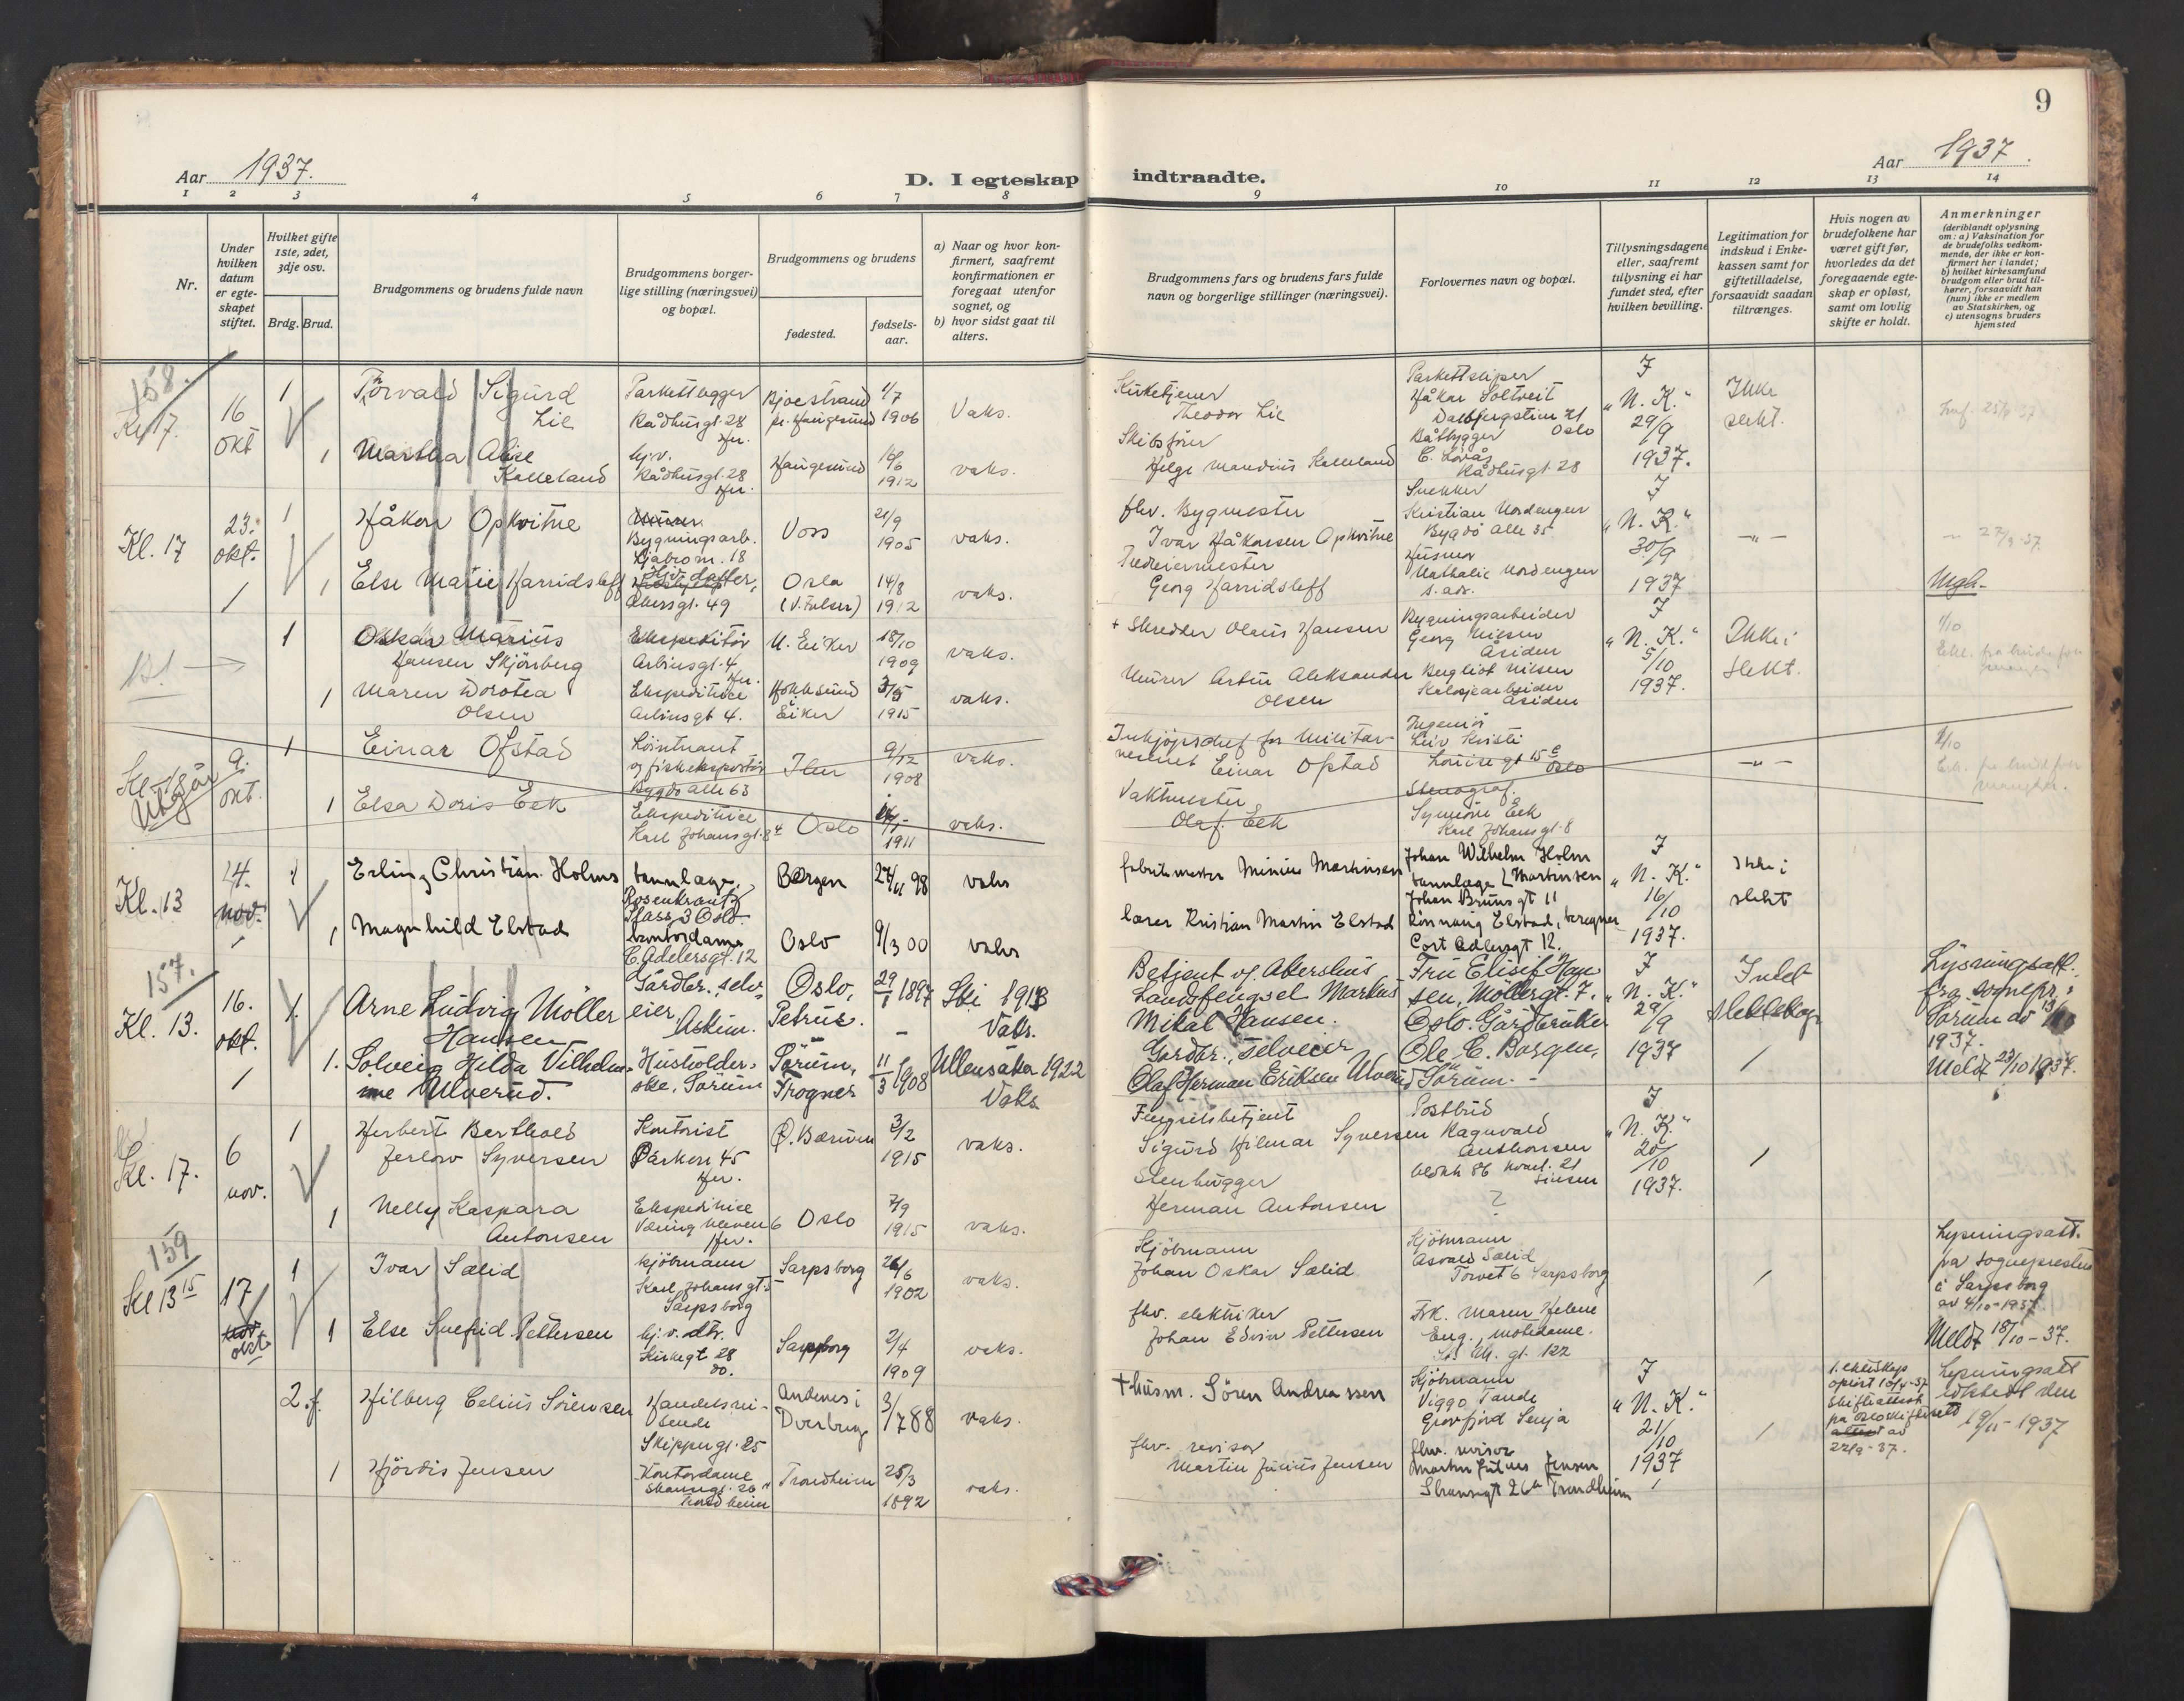 9
Aar 1937.
D. I egteskap
indtraadte.
Aar 1937.
1 2 3 4 5 6 7 8
9 10 11 12 13 14
Nr.
Under hvilken datum er egte-skapet stiftet.
Hvilket gifte 1ste, 2det, 3dje osv.
Brdg. Brud.
Brudgommens og brudens fulde navn
Brudgommens borger-
lige stilling (næringsvei)
og bopæl.
Brudgommens og brudens
fødested.
fødsels-
aar.
a) Naar og hvor kon-
firmert, saafremt
konfirmationen er
foregaat utenfor
sognet, og
b) hvor sidst gaat til
alters.
Brudgommens fars og brudens fars fulde
navn og borgerlige stillinger (næringsvei).
Forlovernes navn og bopæl.
Tillysningsdagene
eller, saafremt
tillysning ei har
fundet sted, efter
hvilken bevilling.
Legitimation for
indskud i Enke-
kassen samt for
giftetilladelse,
forsaavidt saadan
tiltrænges.
Hvis nogen av
brudefolkene har
været gift før,
hvorledes da det
foregaaende egte-
skap er opløst,
samt om lovlig
skifte er holdt.
Anmerkninger
(deriblandt oplysning
om: a) Vaksination for
de brudefolks vedkom-
mende, der ikke er kon-
firmert her i landet;
b) hvilket kirkesamfund
brudgom eller brud til-
hører, forsaavidt han
(hun) ikke er medlem
av Statskirken, og
c) utensogns bruders
hjemsted
158.
Kl 17.
16 okt
1
Torvald Sigurd
Lie
Parkettlegger
Rådhusgt. 28
Bjoestrand
pr. Haugesund
1/7 1906
Vaks.
Kirketjener
Theodor Lie
Parkettsliper
Håkon Soltveit
Dalsbergstien 21
Oslo
J
"N. K."
29/9
1937.
Ikke
slekt.
1
Martha Alise
Kalleland
hjv.
Rådhusgt. 28
Haugesund
16/6 1912
vaks.
Skibsfører
Helge Mandius Kalleland
Båtbygger
E. Lovås
Rådhusgt. 28
Kl. 17
23. okt.
1
Håkon Opkvitne
Bygningsarb.
Ljabrom. 18
Voss
21/9 1905
vaks.
fhv. Bygmester
Ivar Håkonsen Opkvitne
Snekker
Kristian Nordengen
Bygdø Alle 35
J
"N. K."
30/9
1937
— " —
27/9 37.
1
Else Marie Harridsleff
Hjv. datter,
Akersgt. 49
Oslo
(V. Frelser)
14/8 1912
vaks.
Georg Harridsleff
Husmor
Nathalie Nordengen
s. adr.
1
Oskar Marius
Hansen Skjørsberg
Ekspeditør
Arbinsgt. 4
N. Eiker
18/10 1909
vaks.
+ Skredder Olaus Hansen
Bygningsarbeider
Georg Nilsen
Åsiden
J
"N. K."
5/10
1937.
Ikke i
slekt.
1/10
1
Maren Dorotea
Olsen
Ekspeditrice
Arbinsgt 4.
Hokksund
Eiker
3/5 1915
vaks.
Murer Artur Aleksander
Olsen
Bergliot Nilsen
Åsiden
Utgår
9. okt.
1
Einar Ofstad
Løitnant
og fiskeksportør
Bygdø alle 63
Ilen
9/12 1908
vaks.
Indkjøpschef for Militær-
vesenet Einar Ofstad
Ingeniør
Leiv Kristi
Louisegt 15 c
Oslo
— " —
1/10
1
Elsa Doris Eek
Ekspeditrice
Karl Johansgt. 8
Oslo
1911
vaks.
Vaktmester
Olaf Eek
Stenograf.
Symone Eek
Karl Johansgt. 8
Kl. 13
14. nov.
1
Erling Christian Holms
tannlæge,
Rosenkrantz
Plass 3 Oslo
Bergen
27/11 98
vaks
fabrikmester Minius Martinsen
Johan Wilhelm Holm
tannlæge L Martinsen
Johan Brunsgt 11
J
"N. K."
16/10
1937.
Ikke i
slekt
1
Magnhild Elstad
kontordame
C. Adelersgt. 12
Oslo
9/3 00
vaks
lærer Kristian Martin Elstad
Rønnaug Elstad, beregner
Cort Adlersgt 12.
157.
Kl. 13.
16. okt.
1.
Arne Ludvig Möller
Hansen
Gårdbr., selv-
eier,
Askim.
Oslo,
Petrus.
29/1 1897
Ski 1913
Vaks.
Betjent v. Akershus
Landsfengsel Markus
Mikal Hansen.
Fru Elisif Han-
sen, Möllergt. 7.
Oslo. Gårdbruker
J
"N. K."
29/9
1937
Intet
slektskap
Lysningsatt.
fra sognepr. i
Sørum av 13/10
1937.
Meldt 23/10 1937.
1.
Solveig Hilda Vilhelm-
ine Ulverud.
Husholder-
ske, Sørum
Sørum,
Frogner
11/3 1908
Ullensaker 1922
Vaks
Gårdbr., selveier
Olaf Herman Eriksen Ulverud
Ole C. Borgen,
Sørum.
Kl. 17.
6 nov.
1
Herbert Berthold
Jerlow Syversen
Kontorist
Parkvn 45
Ø. Bærum
3/2 1915
vaks.
Fengselsbetjent
Sigurd Hilmar Syversen
Postbud
Ragnvald
Anthonsen
Blokk 86 kvart. 21
Sinsen
J
"N. K."
20/10
1937.
1
Nelly Kaspara
Antonsen
Ekspeditrice
Oslo
7/9 1915
vaks.
Stenhugger
Herman Antonsen
?
159
Kl 13 15
17 okt
1
Ivar Sælid
kjøbmann
Karl Johansgt.
Sarpsborg
Sarpsborg
26/6 1902
vaks.
Kjöbmann
Johan Oskar Sælid
Kjöbmann
Asvald Sælid
Torvet 6 Sarpsborg
Lysningsatt.
fra sognepresten
i Sarpsborg
av 9/10-1937.
Meldt 18/10-37.
1
Else Snefrid Pettersen
hj. v. dtr.
Kirkegt 28
do.
Sarpsborg
2/4 1909
vaks.
fhv. elektriker
Johan Edvin Pettersen
Frk. Maren Helene
Eng., motedame.
St. M. gt. 122
2. f.
Hilberg Celius Sörensen
Handelsrei-
sende
Skippergt. 25
Andenes i
Dverberg
3/7 88
vaks.
+ husm. Sören Andreassen
Kjöbmann
Viggo Tande
Grovfjord Senja
J
"N. K."
21/10
1937
1. ekteskap
opløst 15/4-37
skifteattest
fra Oslo skifterett
av
22/9-37.
Lysningsatt
utstedt den
19/11-1937
1
Hjördis Jensen
Kontordame
Trondheim
Trondheim
25/3 1892
vaks.
fhv. revisor
Martin Julius Jensen
fhv. revisor
Martin Julius Jensen
Strandgt 26 a Trondheim